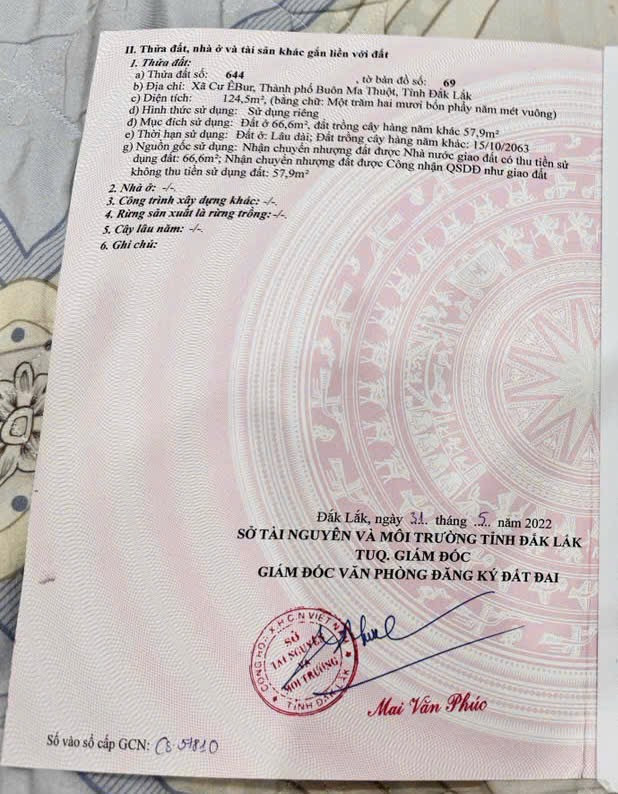 II. Thửa đất, nhà ở và tài sản khác gắn liền với đất
1. Thửa đất:
a) Thửa đất số: 644 , tờ bản đồ số: 69
b) Địa chỉ: Xã Cư ÊBur, Thành phố Buôn Ma Thuột, Tỉnh Đắk Lắk
c) Diện tích: 124,5m², (bằng chữ: Một trăm hai mươi bốn phẩy năm mét vuông)
d) Hình thức sử dụng: Sử dụng riêng
đ) Mục đích sử dụng: Đất ở 66,6m², đất trồng cây hàng năm khác 57,9m²
e) Thời hạn sử dụng: Đất ở: Lâu dài; Đất trồng cây hàng năm khác: 15/10/2063
g) Nguồn gốc sử dụng: Nhận chuyển nhượng đất được Nhà nước giao đất có thu tiền sử
dụng đất: 66,6m²; Nhận chuyển nhượng đất được Công nhận QSDĐ như giao đất
không thu tiền sử dụng đất: 57,9m²
2. Nhà ở: -/-.
3. Công trình xây dựng khác: -/-.
4. Rừng sản xuất là rừng trồng:-/-.
5. Cây lâu năm: -/-.
6. Ghi chú:
Đắk Lắk, ngày 31 tháng 5 năm 2022
SỞ TÀI NGUYÊN VÀ MÔI TRƯỜNG TỈNH ĐẮK LẮK
TUQ. GIÁM ĐỐC
GIÁM ĐỐC VĂN PHÒNG ĐĂNG KÝ ĐẤT ĐAI
CỘNG HÒA X.H.C.N VIỆT NAM
SỞ
TÀI NGUYÊN
VÀ
MÔI TRƯỜNG
TỈNH ĐẮK LẮK
Mai Văn Phúc
Số vào sổ cấp GCN: CS 57810